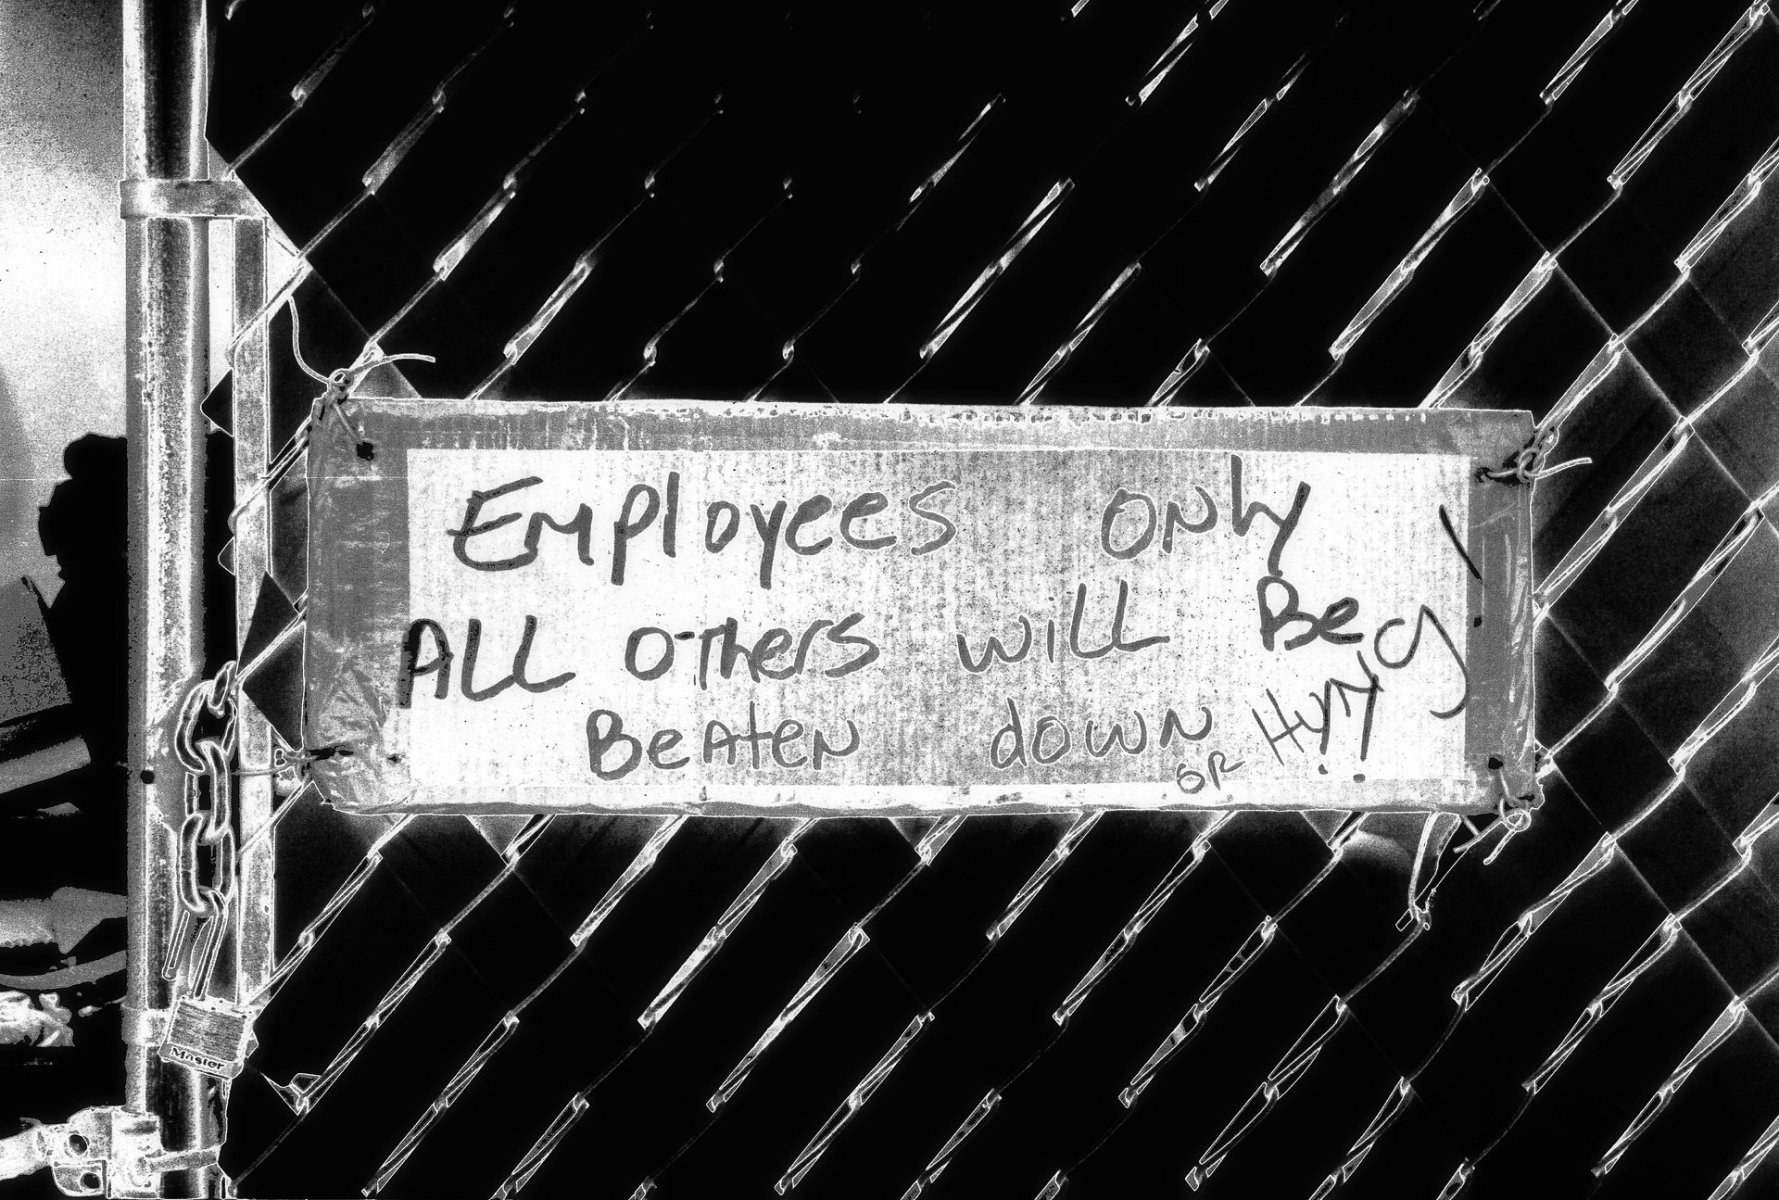 Employees only
ALL others will Be
Beaten down
or Hung!
Master